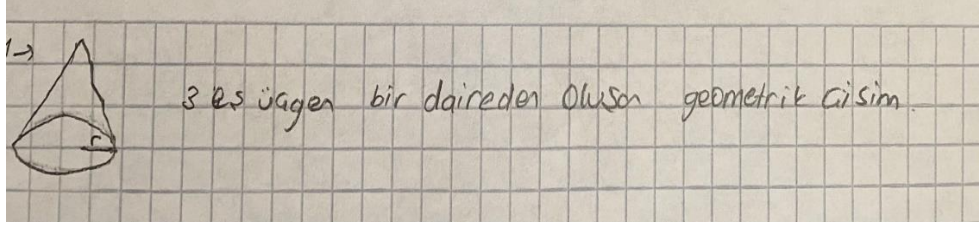 1→
3 eş üçgen bir daireden oluşan geometrik cisim.
r